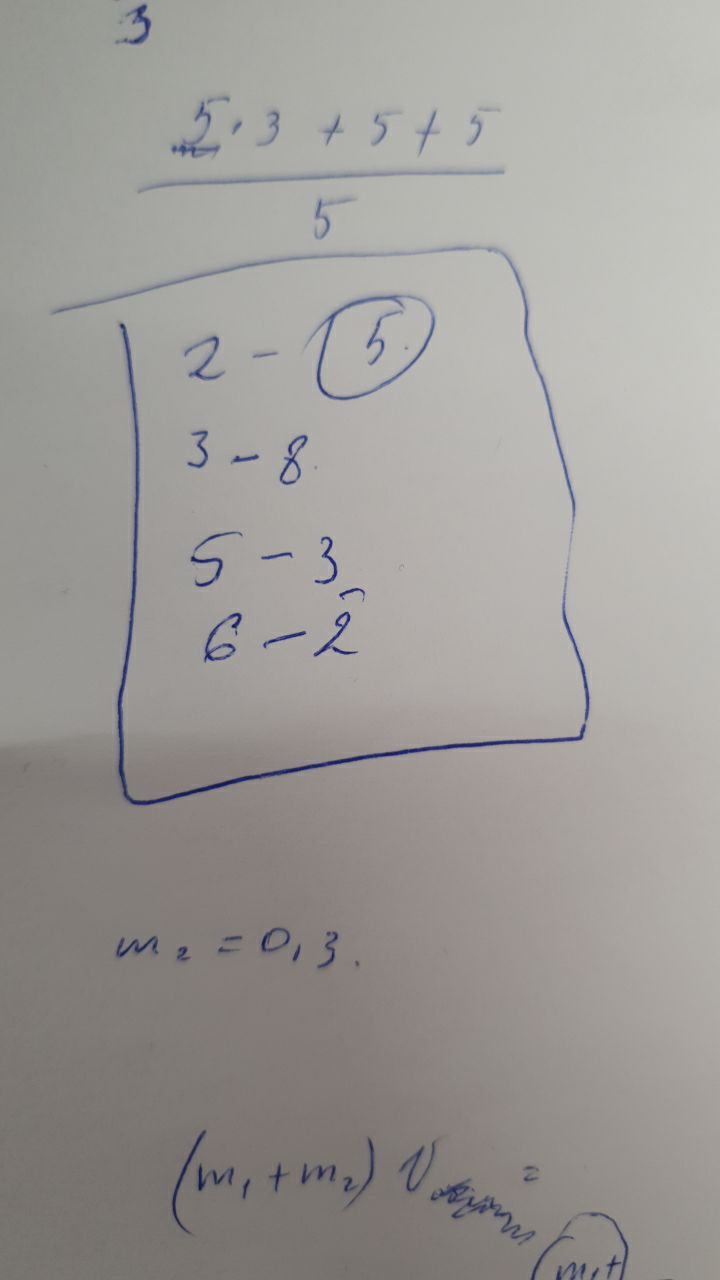 3
5 · 3 + 5 + 5
5
2 - 5
3 - 8
5 - 3
6 - 2
m₂ = 0,3.
(m₁ + m₂) V =
m₁+